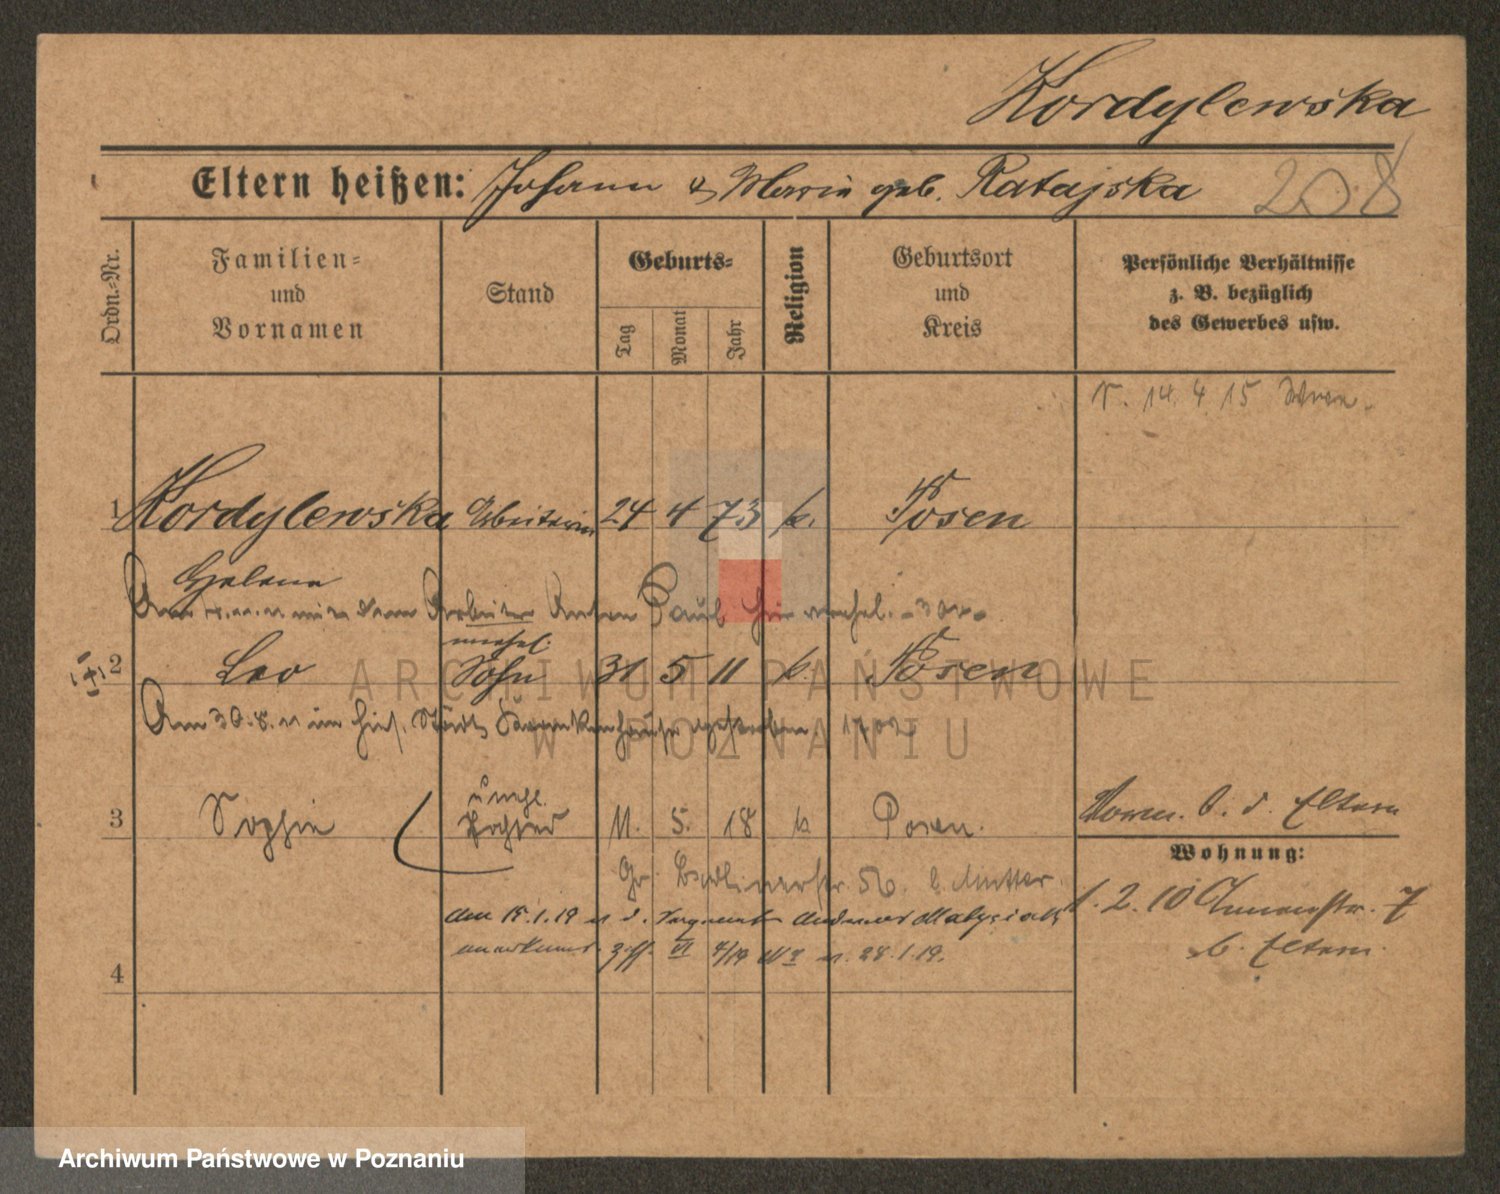 Kordylewska
Eltern heißen: Johann & Maria geb. Ratajska 208
Ordn.-Nr.
Familien-
und
Vornamen
Stand
Geburts-
Tag
Monat
Jahr
Religion
Geburtsort
und
Kreis
Persönliche Verhältnisse
z. B. bezüglich
des Gewerbes usw.
V. 14. 4. 15
1 Kordylewska Arbeiterin 24 4 73 k. Posen
Helena
Am mit dem Arbeiter Anton Paul hier verehel.
unehel.
2 Leo Sohn 31 5 11 k. Posen
Am 30. 8. 11 im hies. Städt. Krankenhause gestorben
unehl.
3 Sophie Tochter 11. 5. 18 k Posen.
Vorm. b. d. Eltern
Wohnung:
Gr. Berlinerstr. 56. b. Mutter.
1. 2. 10 7
b. Eltern.
den 15. 1. 19 v. d.
anerkannt. 28. 1. 19.
4
ARCHIWUM PAŃSTWOWE
W POZNANIU
Archiwum Państwowe w Poznaniu